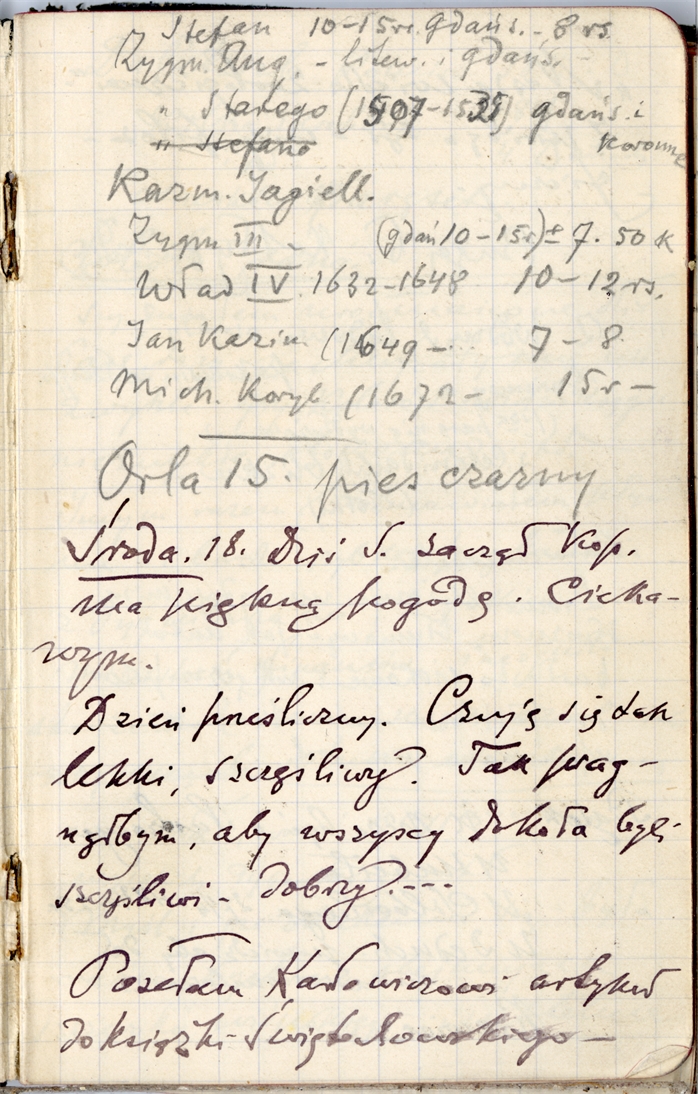 Stefan 10–15rs. gdańs. – 8 rs
Zygm. Aug. – litew. i gdańs. –
" Starego (1507–15) gdańs. i
koronne
" Stefano
Kazm. Jagiell.
Zygm III – (gdań 10–15r) ± 7. 50 K
Wład IV. 1632–1648 10–12 rs.
Jan Kazim (1649 – 7–8
Mich. Koryb (1672– 15r –
Orla 15. pies czarny
Środa. 18. Dziś S. zaczął kop.
Ma piękną pogodę. Cieka-
wym.
Dzień prześliczny. Czuję się tak
lekki, szczęśliwy. Tak prag-
nąłbym, aby wszyscy dokoła byli
szczęśliwi – dobrzy. ---
Posełam Karłowiczowi artykuł
do książki Świętochowskiego –